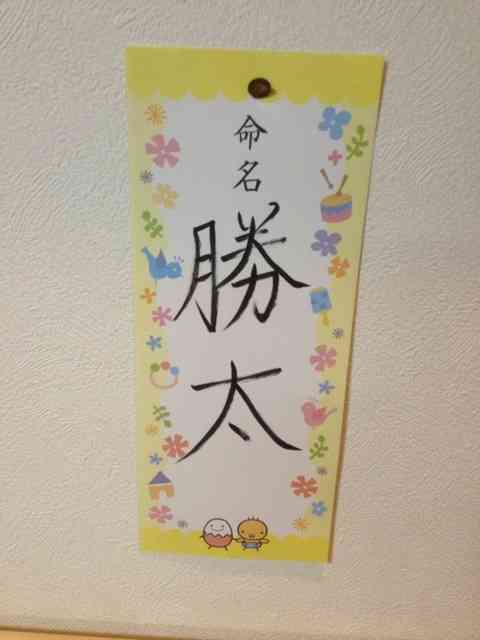 命名
勝太